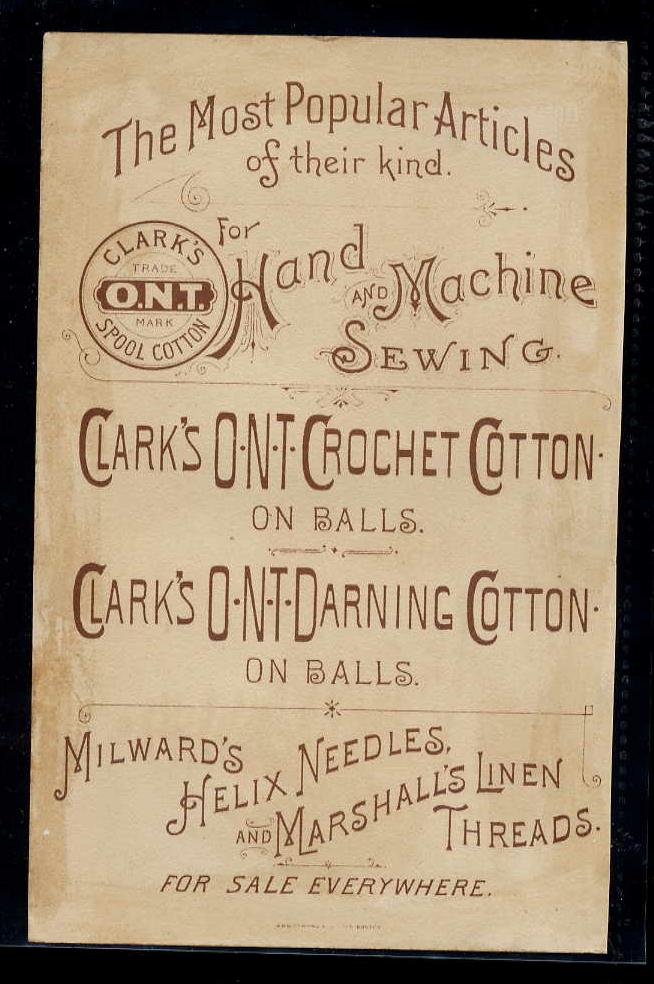 The Most Popular Articles
of their kind.
CLARK'S
TRADE
O.N.T.
MARK
SPOOL COTTON
For
Hand
AND Machine
SEWING.
CLARK'S O·N·T· CROCHET COTTON·
ON BALLS.
CLARK'S O·N·T· DARNING COTTON·
ON BALLS.
MILWARD'S
HELIX NEEDLES,
AND MARSHALL'S LINEN
THREADS.
FOR SALE EVERYWHERE.
BOSTON